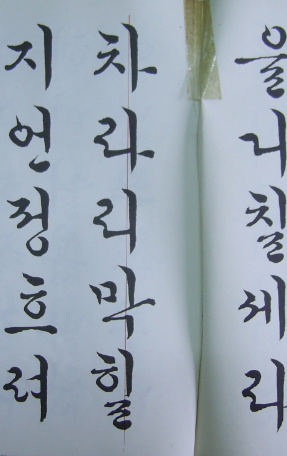 울니칠세라
차라리막힐
지언정흐려